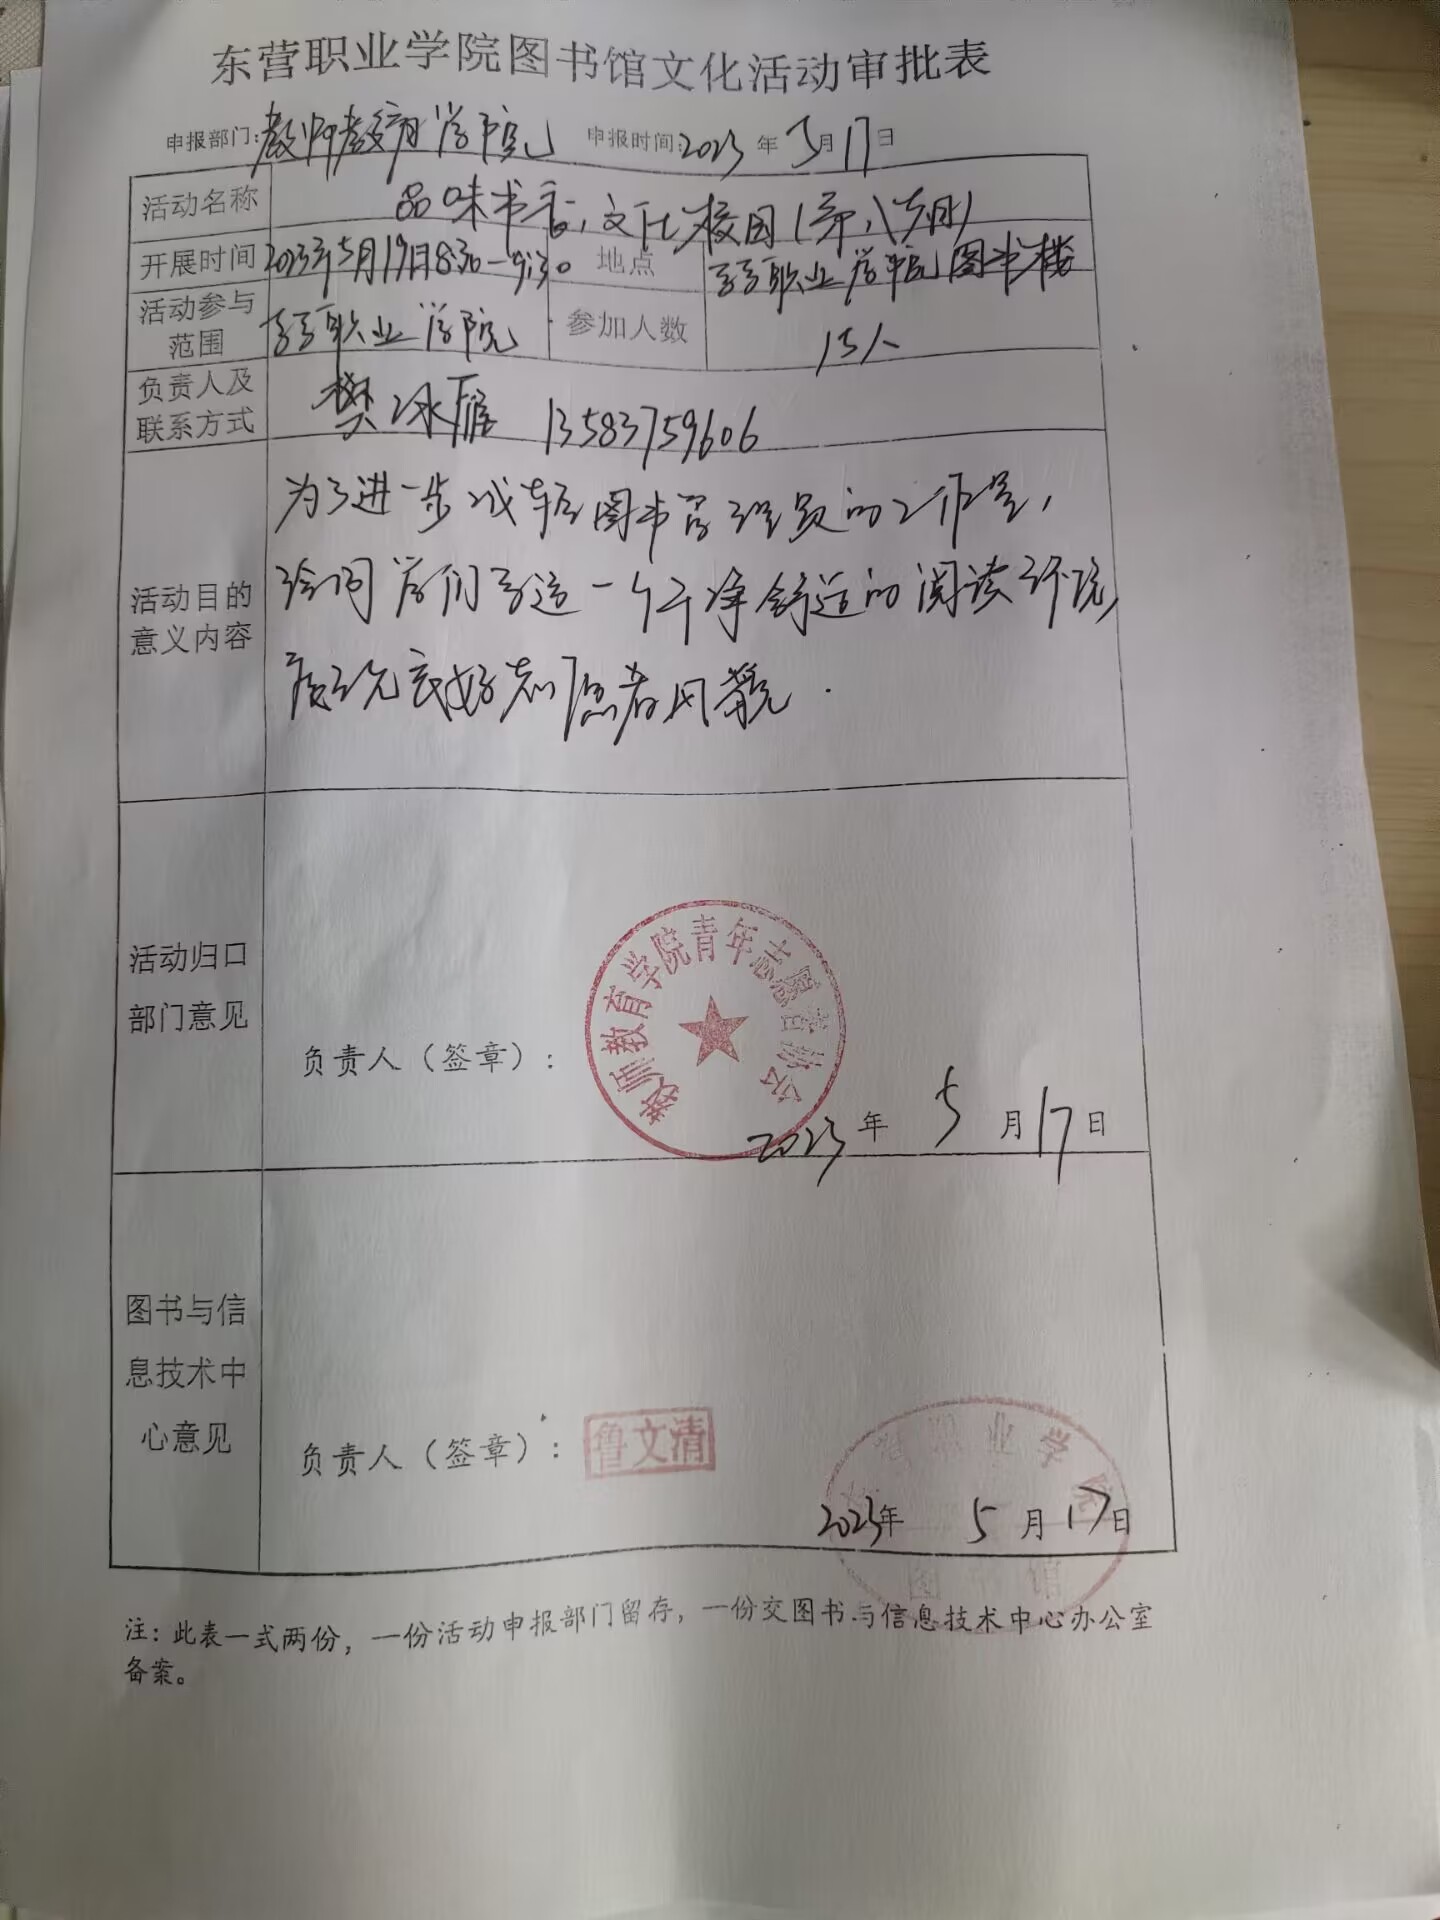 东营职业学院图书馆文化活动审批表
申报部门：教师教育学院 申报时间：2023年5月17日
活动名称 品味书香，文化校园（第八期）
开展时间 2023年5月19日8:30-9:30 地点 东营职业学院图书楼
活动参与范围 东营职业学院 参加人数 15人
负责人及联系方式 樊冰雁 13583759606
活动目的意义内容
为了进一步减轻图书管理员的工作量，
给同学们营造一个干净舒适的阅读环境，
展现良好志愿者风貌．
活动归口
部门意见
教师教育学院青年志愿者协会
负责人（签章）：
2023年5月17日
图书与信
息技术中
心意见
负责人（签章）： 鲁文清
东营职业学院
图书馆
2023年5月17日
注：此表一式两份，一份活动申报部门留存，一份交图书与信息技术中心办公室
备案。